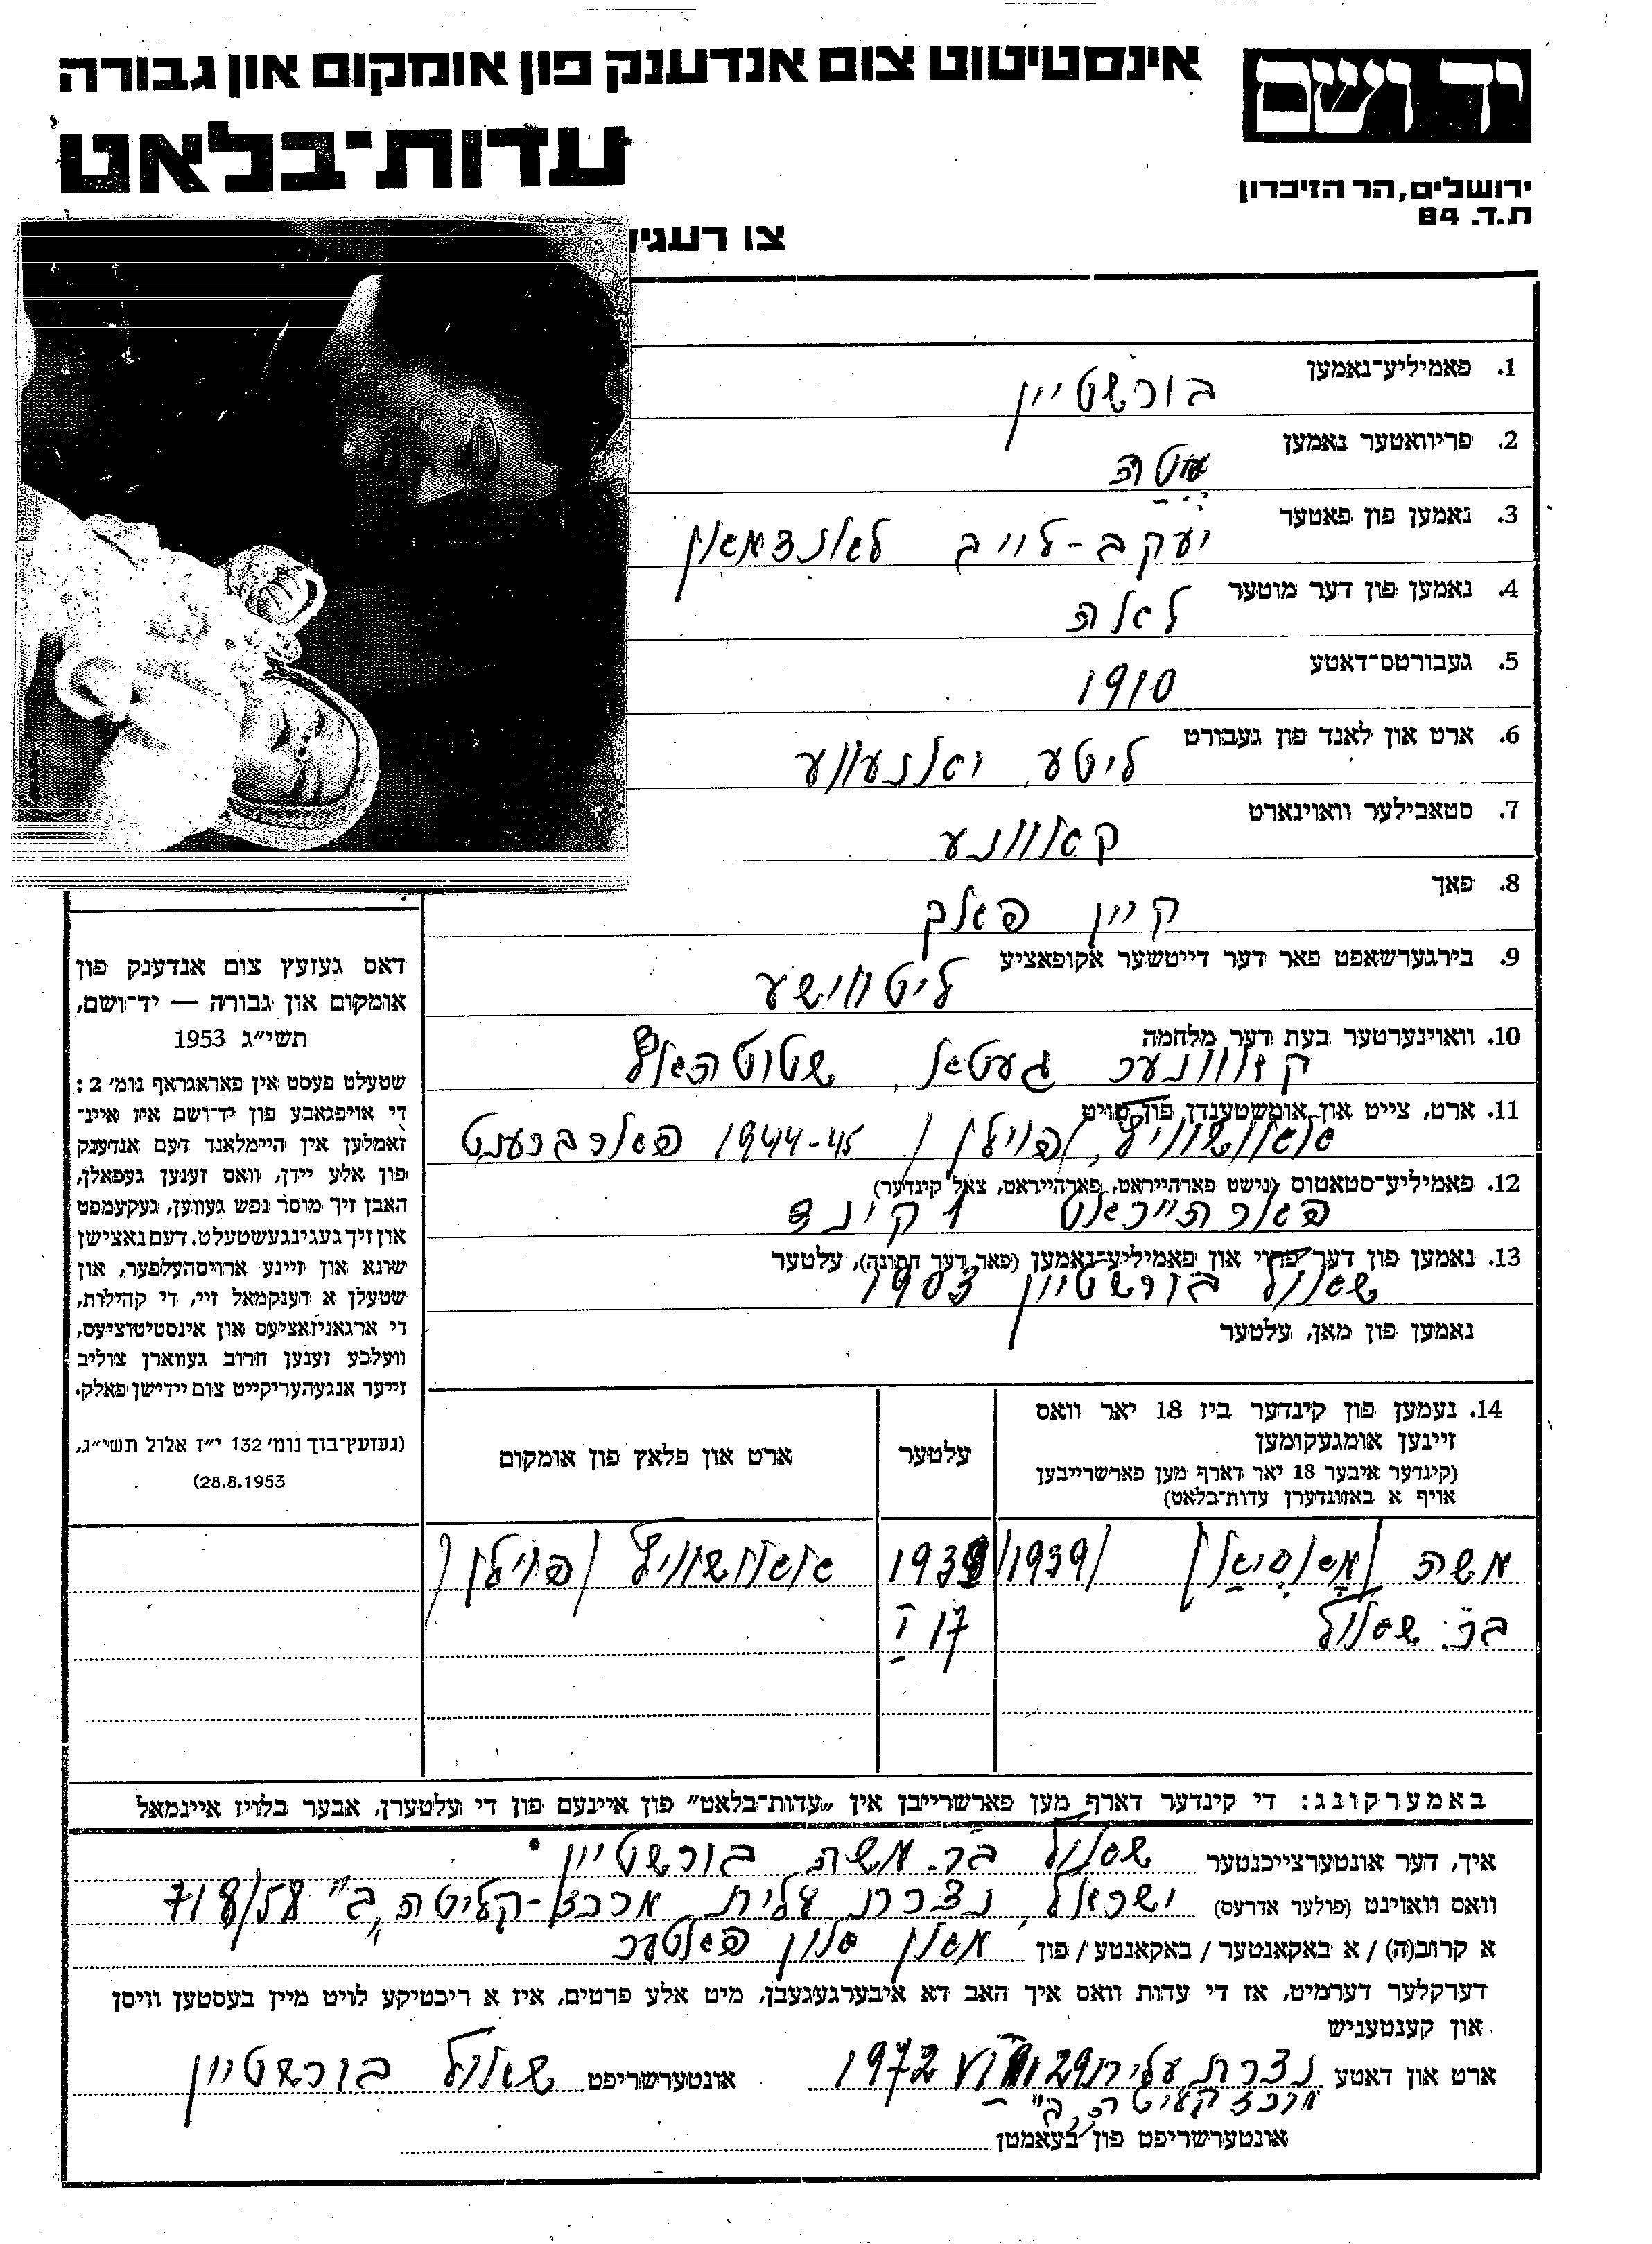 יד ושם
אינסטיטוט צום אנדענק פון אומקום און גבורה
עדות־בלאט
ירושלים, הר הזיכרון
ת.ד. 84
צו רעגי
1. פאמיליע־נאמען
בורשטיין
2. פריוואטער נאמען
3. נאמען פון פאטער
יעקב-לייב לאנדמאן
4. נאמען פון דער מוטער
לאה
5. געבורטס־דאטע
1910
6. ארט און לאנד פון געבורט
ליטע, יאנעווע
7. סטאבילער וואוינארט
קאוונע
8. פאך
קיין פאך
9. בירגערשאפט פאר דער דייטשער אקופאציע
ליטווישע
10. וואוינערטער בעת דער מלחמה
קאוונער געטא, שטוטהאף
11. ארט, צייט און אומשטענדן פון טויט
אושוויץ /פוילן/ 1944-45 פארברענט
12. פאמיליע־סטאטוס (נישט פארהייראט, פארהייראט, צאל קינדער)
פארהייראט 1 קינד
13. נאמען פון דער פרוי און פאמיליע־נאמען (פאר דער חתונה), עלטער
שאול בורשטיין 1903
נאמען פון מאן, עלטער
14. נעמען פון קינדער ביז 18 יאר וואס
זיינען אומגעקומען
(קינדער איבער 18 יאר דארף מען פארשרייבן
אויף א באזונדערן עדות־בלאט)
עלטער
ארט און פלאץ פון אומקום
משה /1939/ 1939 אושוויץ /פוילן/
בר. שאול 17 I
דאס געזעץ צום אנדענק פון
אומקום און גבורה — יד־ושם,
תשי״ג 1953
שטעלט פעסט אין פאראגראף נומ׳ 2 :
די אויפגאבע פון יד־ושם איז איינ־
זאמלען אין היימלאנד דעם אנדענק
פון אלע יידן, וואס זענען געפאלן,
האבן זיך מוסר נפש געווען, געקעמפט
און זיך געגינגעשטעלט. דעם נאצישן
שונא און זיינע ארויסהעלפער, און
שטעלן א דענקמאל זיי, די קהילות,
די ארגאניזאציעס און אינסטיטוציעס,
וועלכע זענען חרוב געווארן צוליב
זייער אנגעהעריקייט צום יידישן פאלק.
(געזעץ־בוך נומ׳ 132 י״ז אלול תשי״ג,
28.8.1953)
באמערקונג: די קינדער דארף מען פארשרייבן אין „עדות־בלאט״ פון איינעם פון די עלטערן, אבער בלויז איינמאל
איך, דער אונטערצייכנטער שאול בר. משה בורשטיין
וואס וואוינט (פולער אדרעס) ישראל, נצרת עלית מרכז-קליטה „ב״ 718/58
א קרוב(ה) / א באקאנטער / באקאנטע / פון מאן און פאטער
דערקלער דערמיט, אז די עדות וואס איך האב דא איבערגעגעבן, מיט אלע פרטים, איז א ריכטיקע לויט מיין בעסטען וויסן
און קענטעניש
ארט און דאטע נצרת עלית 1972 אונטערשריפט שאול בורשטיין
מרכז קליטה „ב״
אונטערשריפט פון בעאמטן